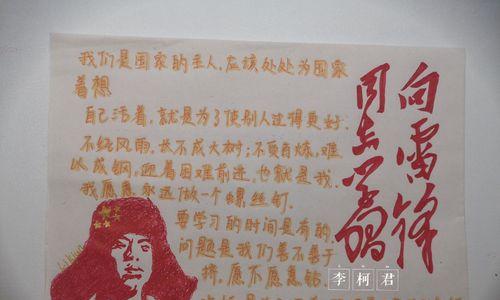 向雷锋
同志学习
我们是国家的主人,应该处处为国家
着想
自己活着,就是为了使别人过得更好.
不经风雨,长不成大树;不受百炼,难
以成钢,迎着困难前进,也就是我.
我愿意永远做一个螺丝钉.
要学习的时间是有的,
问题是我们善不善于
挤,愿不愿意钻.
李柯君